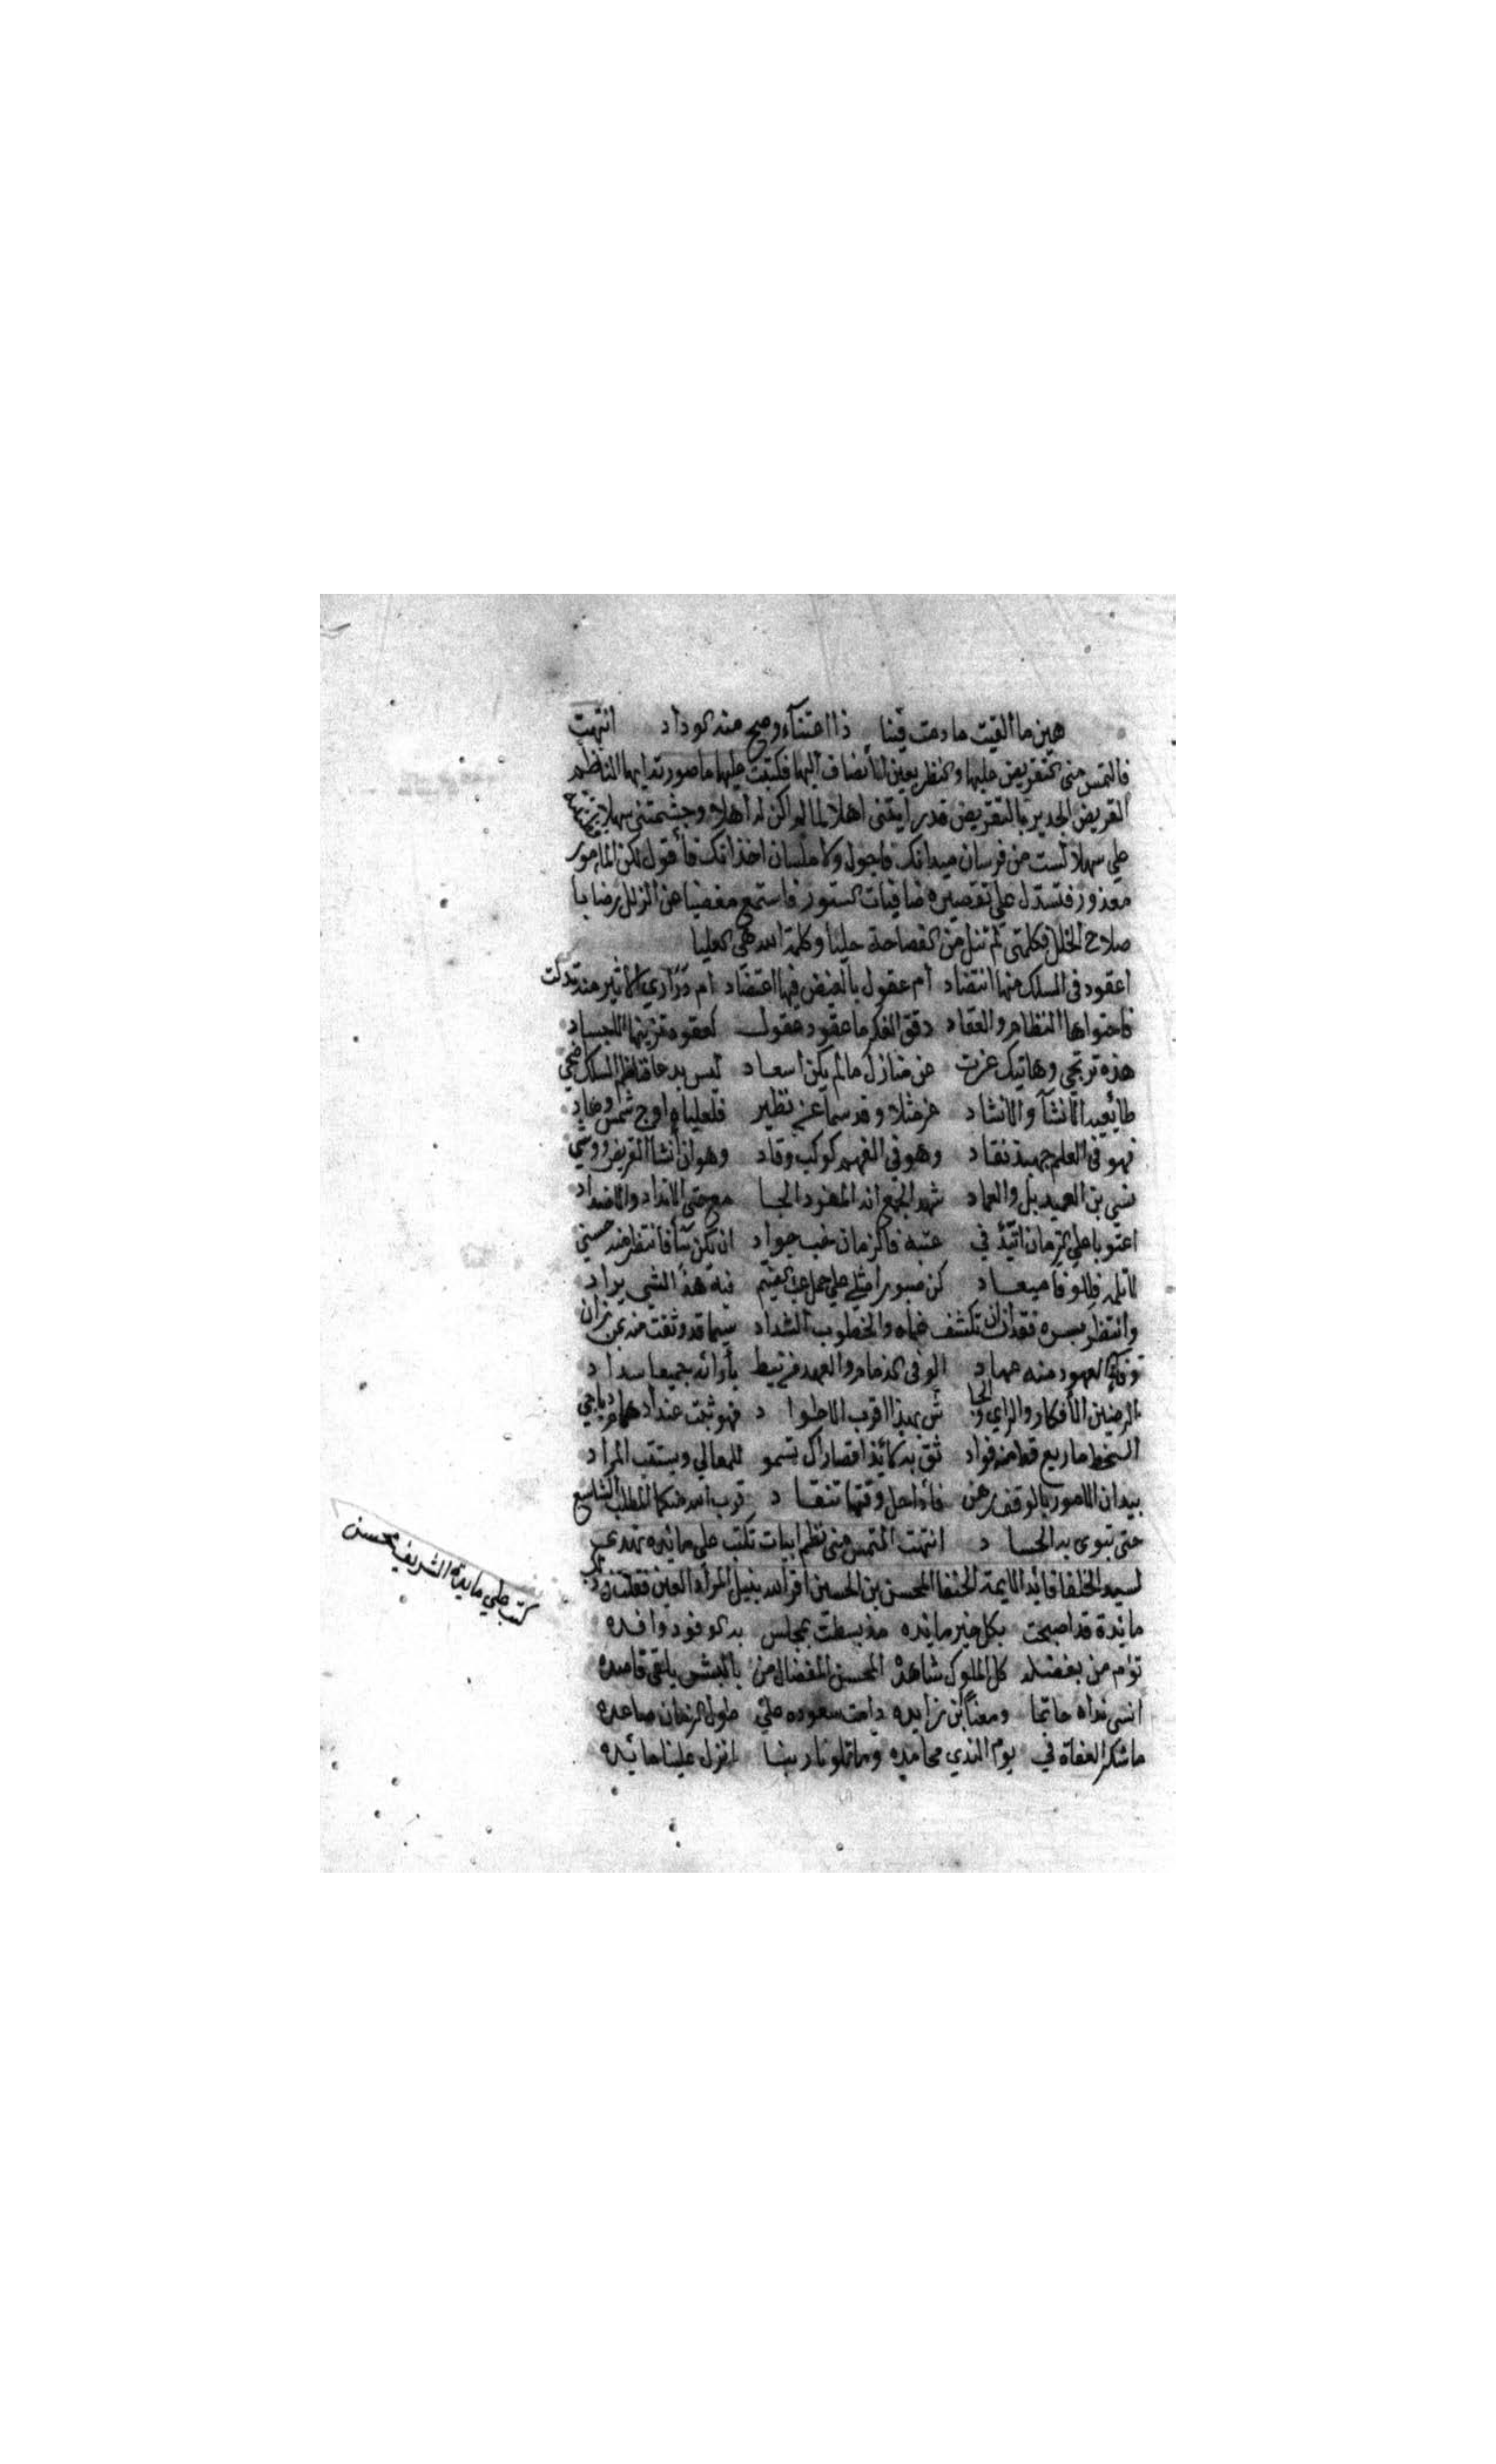 هين ما ألقيت ما دمت فينا ذا اعتناء وصح منه الوداد انتهت
فالتمس مني التقريض عليها والنظر بعين الأنصاف اليها فكتبت عليها ما صورته ايها الناظم
القريض الجدير بالتقريض قد رأيتني اهلا لما لم اكن له أهلا وجشمتني سهلا
علي سهلا لست من فرسان ميدانك فاجول ولا من لسان اخذانك فأقول لكن المامور
معذور فتسدل علي تقصيره ضافيات الستور فاستمع مغضيا عن الزلل رضا با
صلاح الخلل فكلمتي لم تنل من الفصاحة حليا وكلمة الله هي العليا
اعقود في السلك منها انتضاد أم عقول بالفيض فيها اعتضاد أم دراري الاثير منه تدلت
فاحتواها النظام والعقاد دقق الفكر ما عقود عقول كعقود تزينها الاجساد
هذه ترتجي وهاتيك عزت عن منازل ما لم يكن اسعاد ليس بدعا فناظم السلك اضحي
طائعيه الانشآ والانشاد عز مثلا وقد سما عن نظير فلعلياه اوج شمس وهاد
فهو في العلم جهبذ نقاد وهو في الفهم كوكب وقاد وهو ان انشا القريض ووشي
نسي بن العميد بل والعماد شهد الجمع انه المفرد الجا مع حتي الانداد والاضداد
اعتوبا علي الزمان اتئد في عتبه فالزمان خب جواد ان تكن شآ فانتظر عند حسني
لا تلمه فللوفا ميعاد كن صبورا مثلي علي حمل عب الضيم فيه هذا الشي يراد
وانتظر يسره فقد ان ان تكشف غماه والخطوب الشداد سيما قد وثقت منه بمن زان
توكيد العهود منه عهاد الوفي الذمام والعهد مرتبط بأرائه جميعا سداد
الرصين الأفكار والراي والجا ش بهذا اقرت الاطواد فهو ثبت عند
السخط ما ريع قط منه فواد ثق به كائذا قصاراك تسمو للمعالي ويستقب المراد
بيد ان الامور بالوقف رهن فأذا حل وقتها تنقاد قرب الله منكما المطلب الشاسع
حتي تبوي به الحساد انتهت التمس مني نظم ابيات تكتب علي مائدة تهدي
لسيد الخلفا قائد الايمة الحنفا المحسن بن الحسين اقر الله بنيل المراد العين فقلت
مائدة قد اصبحت بكل خير مائده مذ بسطت بمجلس به الوفود وافده
تؤم من بفضله كل الملوك شاهده المحسن المفضال من بالبشر يلقي قاصده
انسي نداه حاتما ومعنا بن زايده دامت سعوده علي طول الزمان صاعده
ما شكر العفاة في يوم الندي محامده وما تلو يا ربنا انزل علينا مائده
كتب علي مايدة الشريف محسن